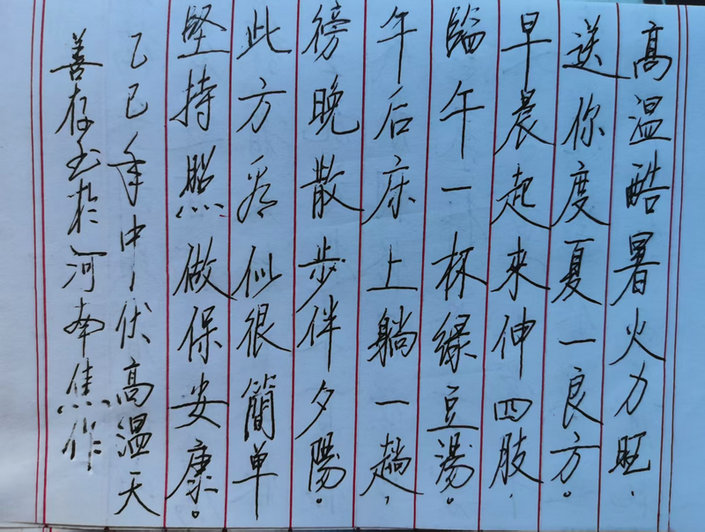 高温酷暑火力旺，
送你度夏一良方。
早晨起来伸四肢，
临午一杯绿豆湯。
午后床上躺一趟，
傍晚散步伴夕陽。
此方看似很簡单
堅持照做保安康。
乙巳年中伏高温天
善存书於河南焦作